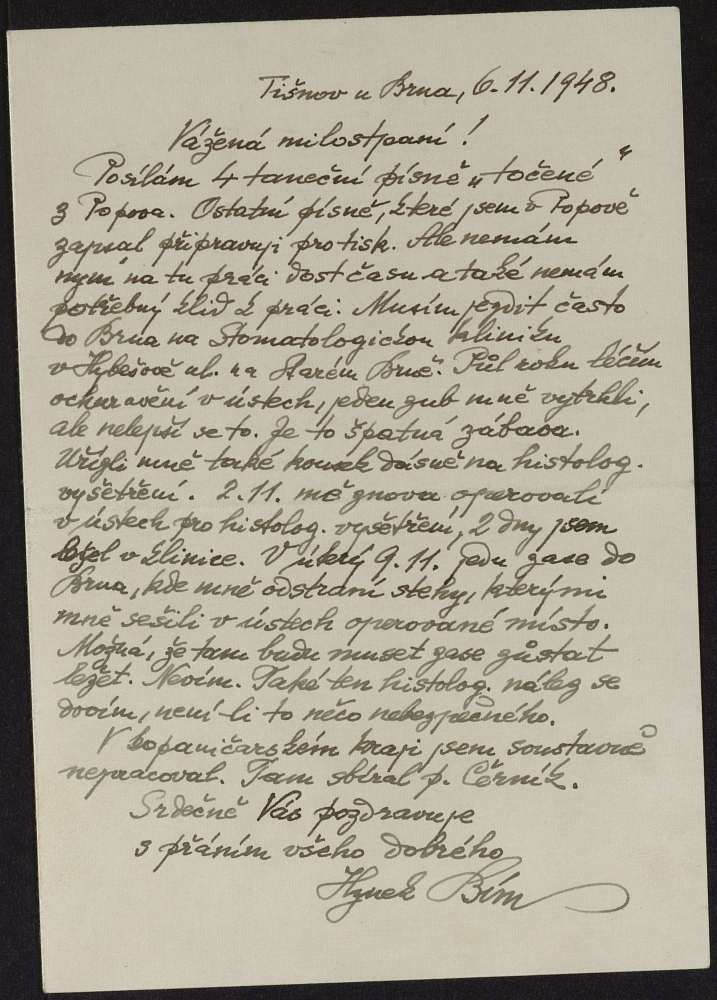 Tišnov u Brna, 6.11.1948.
Vážená milostpaní!
Posílám 4 taneční písně „točené“
z Popova. Ostatní písně, které jsem v Popově
zapsal připravuji pro tisk. Ale nemám
nyní na tu práci dost času a také nemám
potřebný klid k práci. Musím jezdit často
do Brna na Stomatologickou kliniku
v Hybešově ul. na Starém Brně. Půl roku léčím
ochuravění v ústech, jeden zub mně vytrhli,
ale nelepší se to. Je to špatná zábava.
Uřízli mně také kousek dásně na histolog.
vyšetření. 2.11. mě znova operovali
v ústech pro histolog. vyšetření, 2 dny jsem
ležel v klinice. V úterý 9.11. jedu zase do
Brna, kde mně odstraní stehy, kterými
mně sešili v ústech operované místo.
Možná, že tam budu muset zase zůstat
ležet. Nevím. Také ten histolog. nález se
dovím, není-li to něco nebezpečného.
V kopaničarském kraji jsem soustavně
nepracoval. Tam sbíral p. Černík.
Srdečně Vás pozdravuje
s přáním všeho dobrého
Hynek Bím